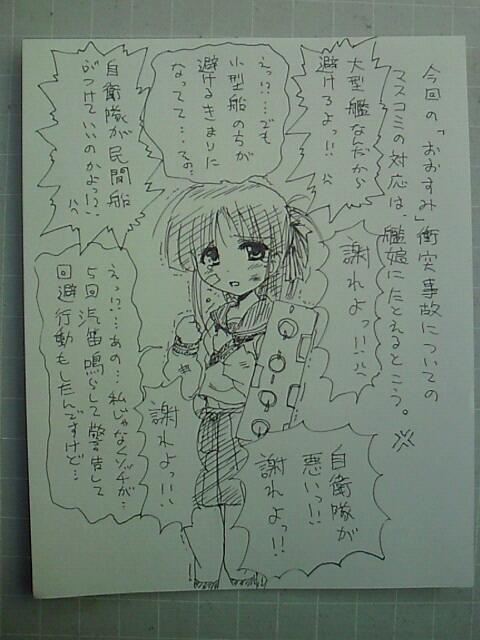 今回の「おおすみ」衝突事故についての
マスコミの対応は、艦娘にたとえるとこう。
大型艦なんだから
避けろよっ!!
えっ!?…でも
小型船のちが
避けるきまりに
なってて…その…
自衛隊が民間船
ぶつけていいのかよっ!?
謝れよっ!!
えっ!?…あの…私じゃなくソッチが…
5回汽笛鳴らして警告して
回避行動もしたんですけど…
謝れよっ!!
自衛隊が
悪いっ!!
謝れよっ!!